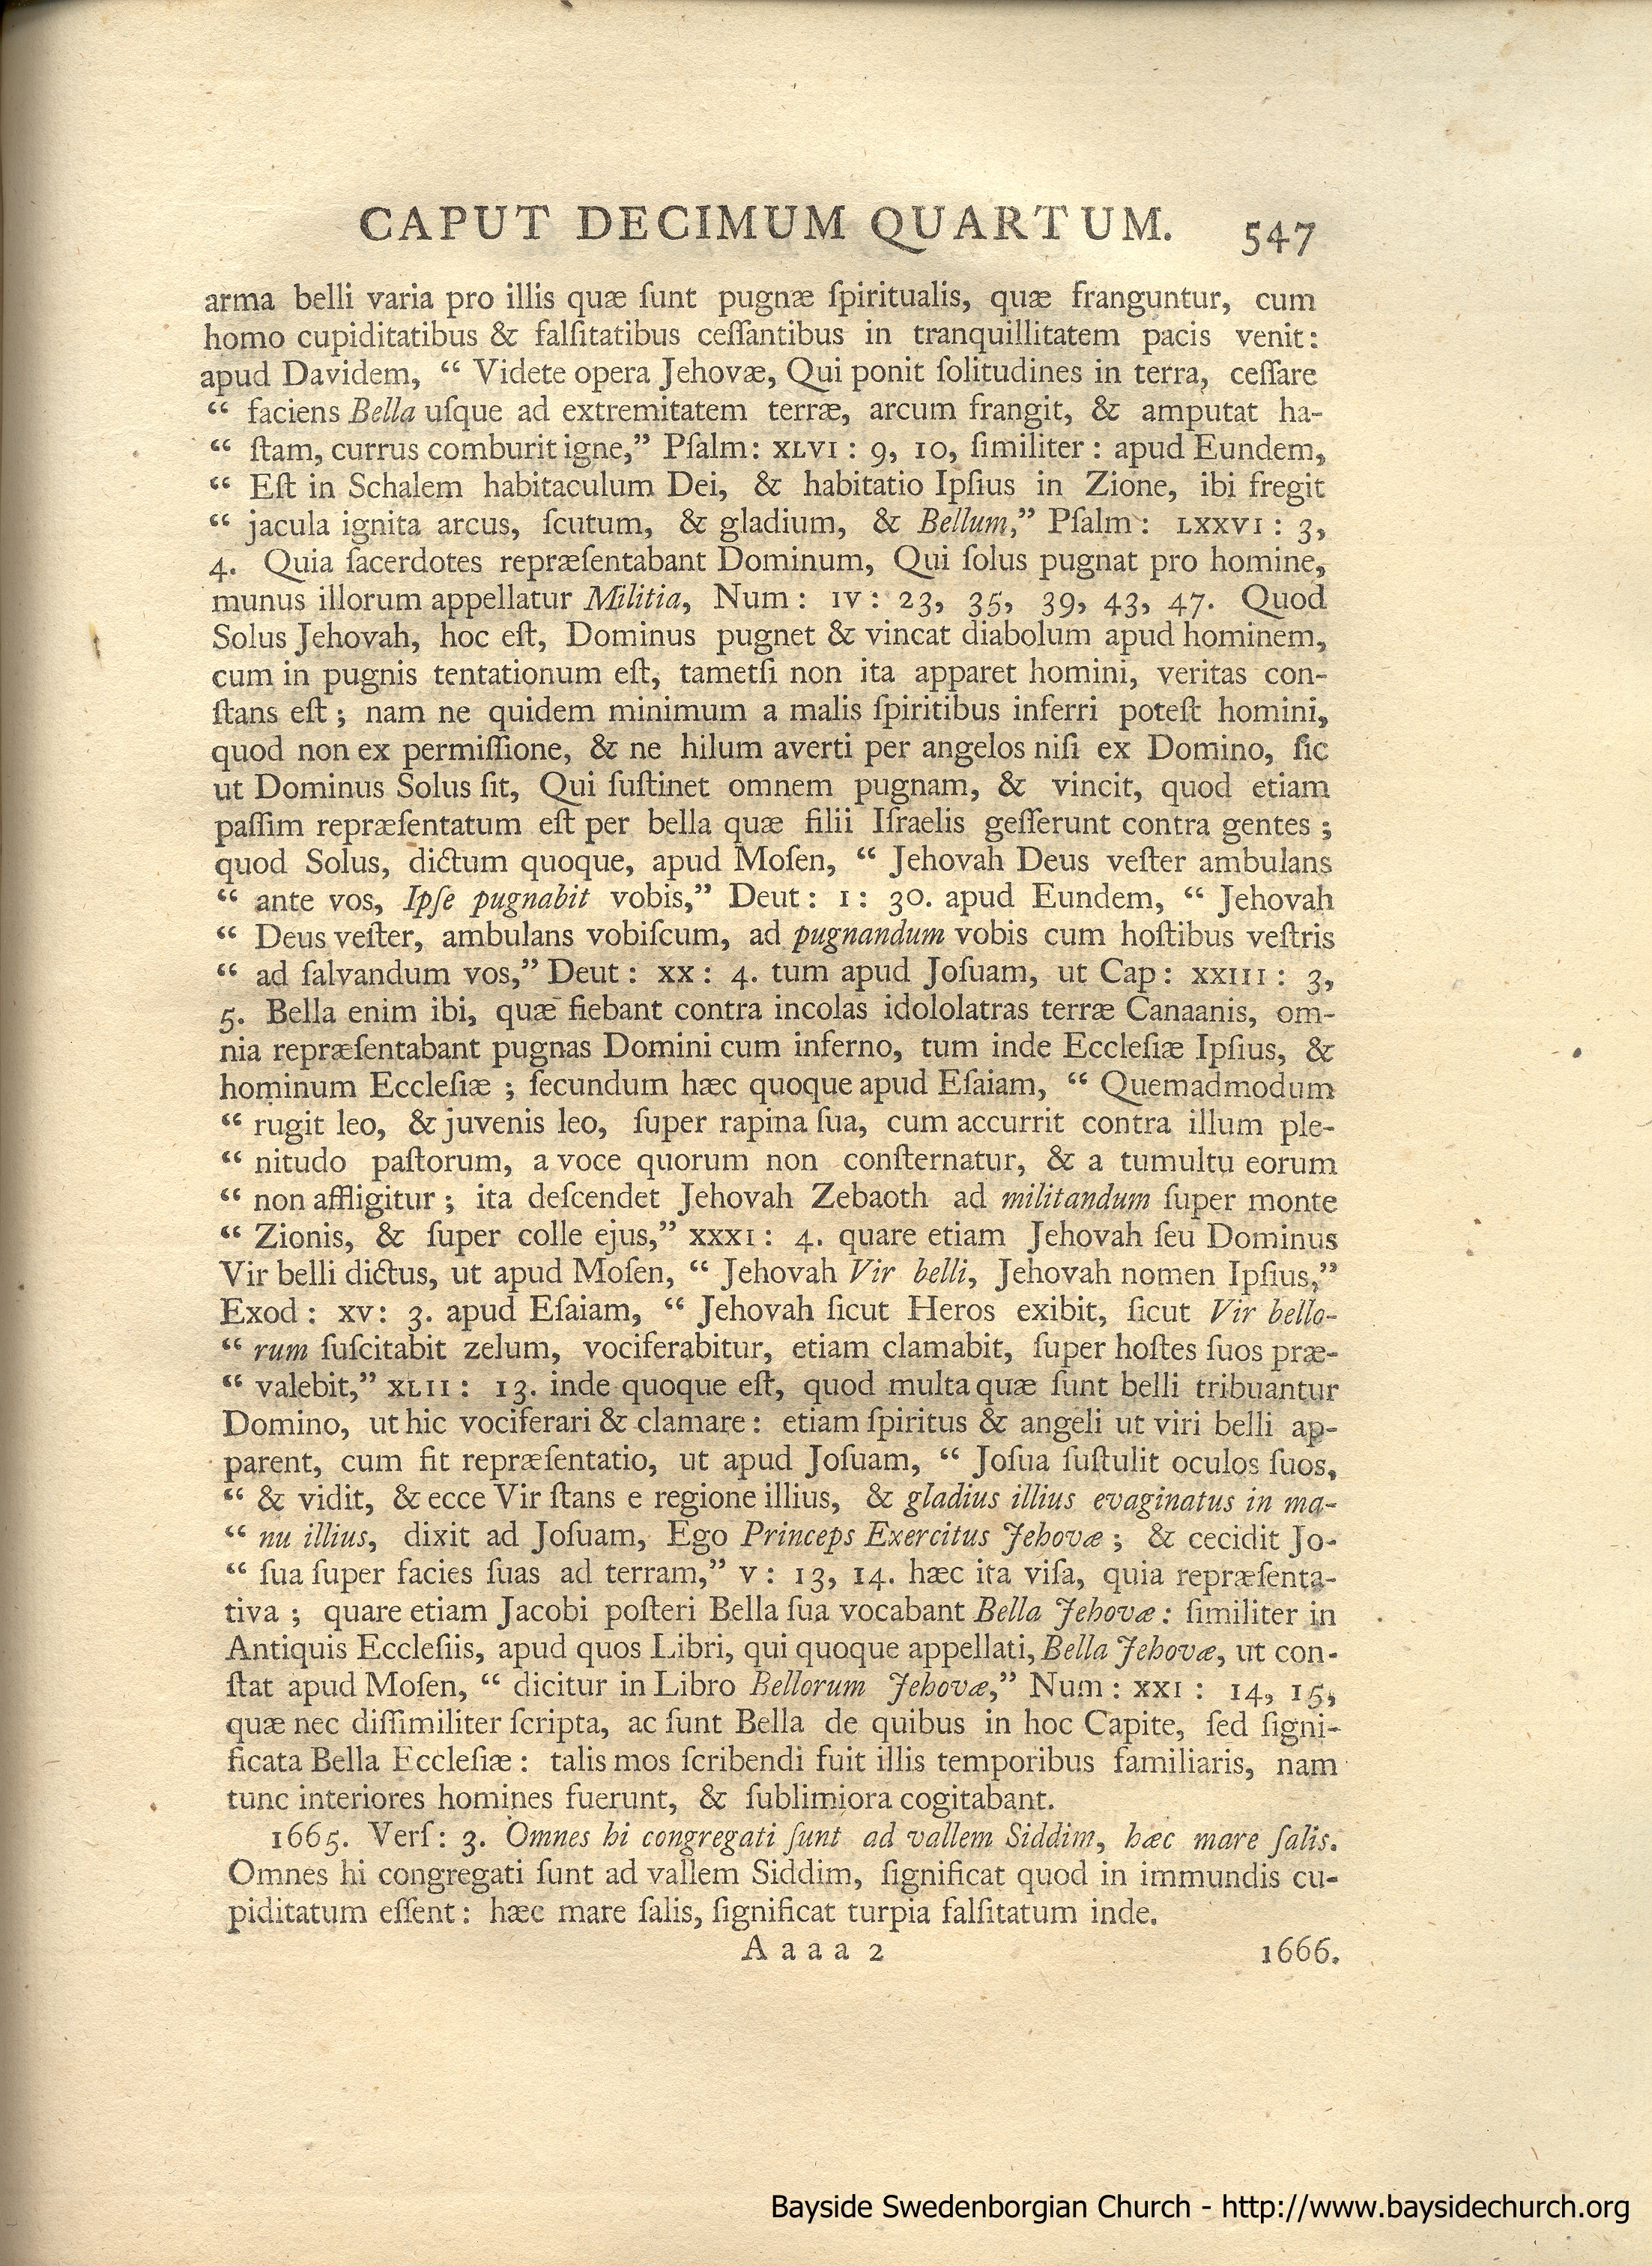 CAPUT DECIMUM QUARTUM. 547
arma belli varia pro illis quæ ſunt pugnæ ſpiritualis, quæ franguntur, cum
homo cupiditatibus & falſitatibus ceſſantibus in tranquillitatem pacis venit:
apud Davidem, “ Videte opera Jehovæ, Qui ponit ſolitudines in terra, ceſſare
“ faciens Bella uſque ad extremitatem terræ, arcum frangit, & amputat ha-
“ ſtam, currus comburit igne,” Pſalm: XLVI : 9, 10, ſimiliter : apud Eundem,
“ Eſt in Schalem habitaculum Dei, & habitatio Ipſius in Zione, ibi fregit
“ jacula ignita arcus, ſcutum, & gladium, & Bellum,” Pſalm: LXXVI : 3,
4. Quia ſacerdotes repræſentabant Dominum, Qui ſolus pugnat pro homine,
munus illorum appellatur Militia, Num: IV: 23, 35, 39, 43, 47. Quod
Solus Jehovah, hoc eſt, Dominus pugnet & vincat diabolum apud hominem,
cum in pugnis tentationum eſt, tametſi non ita apparet homini, veritas con-
ſtans eſt; nam ne quidem minimum a malis ſpiritibus inferri poteſt homini,
quod non ex permiſſione, & ne hilum averti per angelos niſi ex Domino, ſic
ut Dominus Solus ſit, Qui ſuſtinet omnem pugnam, & vincit, quod etiam
paſſim repræſentatum eſt per bella quæ filii Iſraelis geſſerunt contra gentes;
quod Solus, dictum quoque, apud Moſen, “ Jehovah Deus veſter ambulans
“ ante vos, Ipſe pugnabit vobis,” Deut: I: 30. apud Eundem, “ Jehovah
“ Deus veſter, ambulans vobiſcum, ad pugnandum vobis cum hoſtibus veſtris
“ ad ſalvandum vos,” Deut: XX: 4. tum apud Joſuam, ut Cap: XXIII: 3,
5. Bella enim ibi, quæ fiebant contra incolas idololatras terræ Canaanis, om-
nia repræſentabant pugnas Domini cum inferno, tum inde Eccleſiæ Ipſius, &
hominum Eccleſiæ; ſecundum hæc quoque apud Eſaiam, “ Quemadmodum
“ rugit leo, & juvenis leo, ſuper rapina ſua, cum accurrit contra illum ple-
“ nitudo paſtorum, a voce quorum non conſternatur, & a tumultu eorum
“ non affligitur; ita deſcendet Jehovah Zebaoth ad militandum ſuper monte
“ Zionis, & ſuper colle ejus,” XXXI: 4. quare etiam Jehovah ſeu Dominus
Vir belli dictus, ut apud Moſen, “ Jehovah Vir belli, Jehovah nomen Ipſius,”
Exod: XV: 3. apud Eſaiam, “ Jehovah ſicut Heros exibit, ſicut Vir bello-
“ rum ſuſcitabit zelum, vociferabitur, etiam clamabit, ſuper hoſtes ſuos præ-
“ valebit,” XLII: 13. inde quoque eſt, quod multa quæ ſunt belli tribuantur
Domino, ut hic vociferari & clamare: etiam ſpiritus & angeli ut viri belli ap-
parent, cum fit repræſentatio, ut apud Joſuam, “ Joſua ſuſtulit oculos ſuos,
“ & vidit, & ecce Vir ſtans e regione illius, & gladius illius evaginatus in ma-
“ nu illius, dixit ad Joſuam, Ego Princeps Exercitus Jehovæ; & cecidit Jo-
“ ſua ſuper facies ſuas ad terram,” V: 13, 14. hæc ita viſa, quia repræſenta-
tiva; quare etiam Jacobi poſteri Bella ſua vocabant Bella Jehovæ: ſimiliter in
Antiquis Eccleſiis, apud quos Libri, qui quoque appellati, Bella Jehovæ, ut con-
ſtat apud Moſen, “ dicitur in Libro Bellorum Jehovæ,” Num: XXI: 14, 15,
quæ nec diſſimiliter ſcripta, ac ſunt Bella de quibus in hoc Capite, ſed ſigni-
ficata Bella Eccleſiæ: talis mos ſcribendi fuit illis temporibus familiaris, nam
tunc interiores homines fuerunt, & ſublimiora cogitabant.
1665. Verſ: 3. Omnes hi congregati ſunt ad vallem Siddim, hæc mare ſalis.
Omnes hi congregati ſunt ad vallem Siddim, ſignificat quod in immundis cu-
piditatum eſſent: hæc mare ſalis, ſignificat turpia falſitatum inde.
A a a a 2 1666.
Bayside Swedenborgian Church - http://www.baysidechurch.org